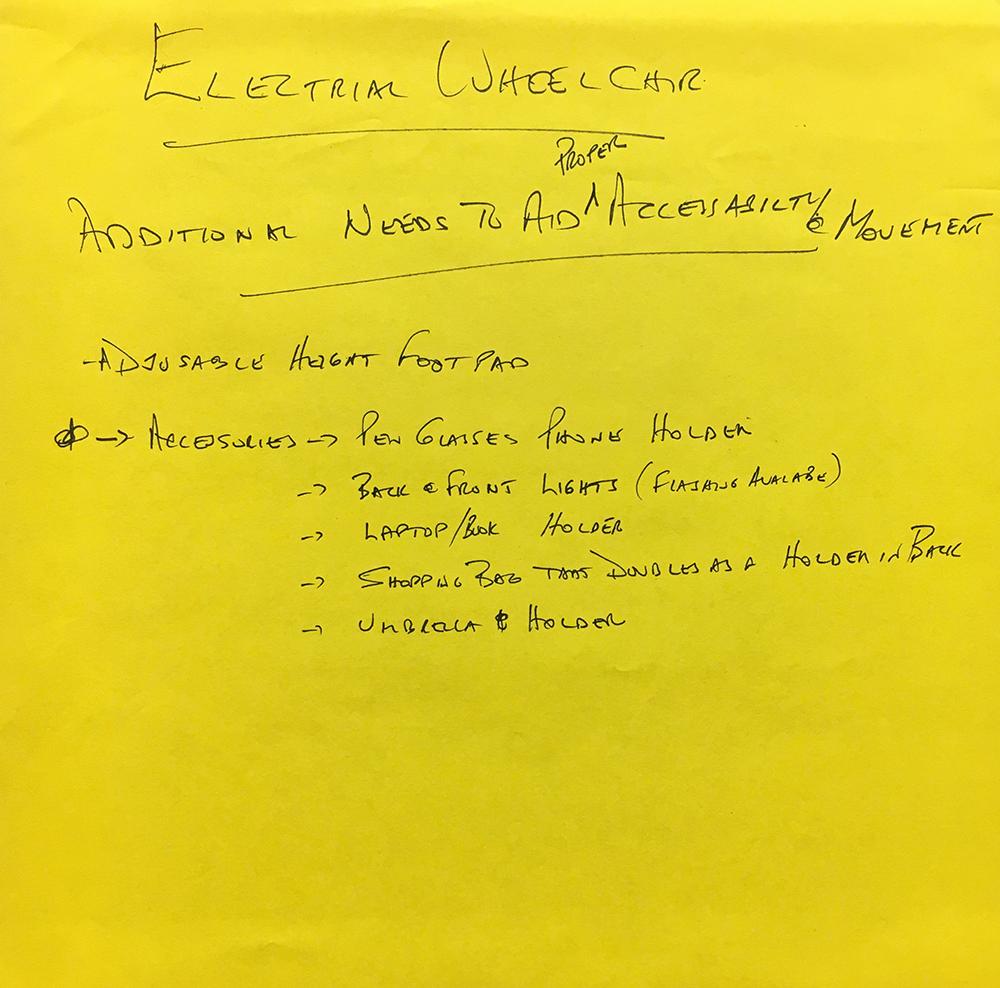 ELECTRIAL WHEELCHAIR
ADDITIONAL NEEDS TO AID ^PROPER ACCESSABILTY & MOVEMENT
-ADJUSABLE HEIGHT FOOTPAD
-> ACCESORIES -> PEN GLASSES PHONE HOLDER
-> BACK & FRONT LIGHTS (FLASHING AVALABE)
-> LAPTOP/BOOK HOLDER
-> SHOPPING BAG THAT DOUBLES AS A HOLDER IN BACK
-> UMBRELA & HOLDER